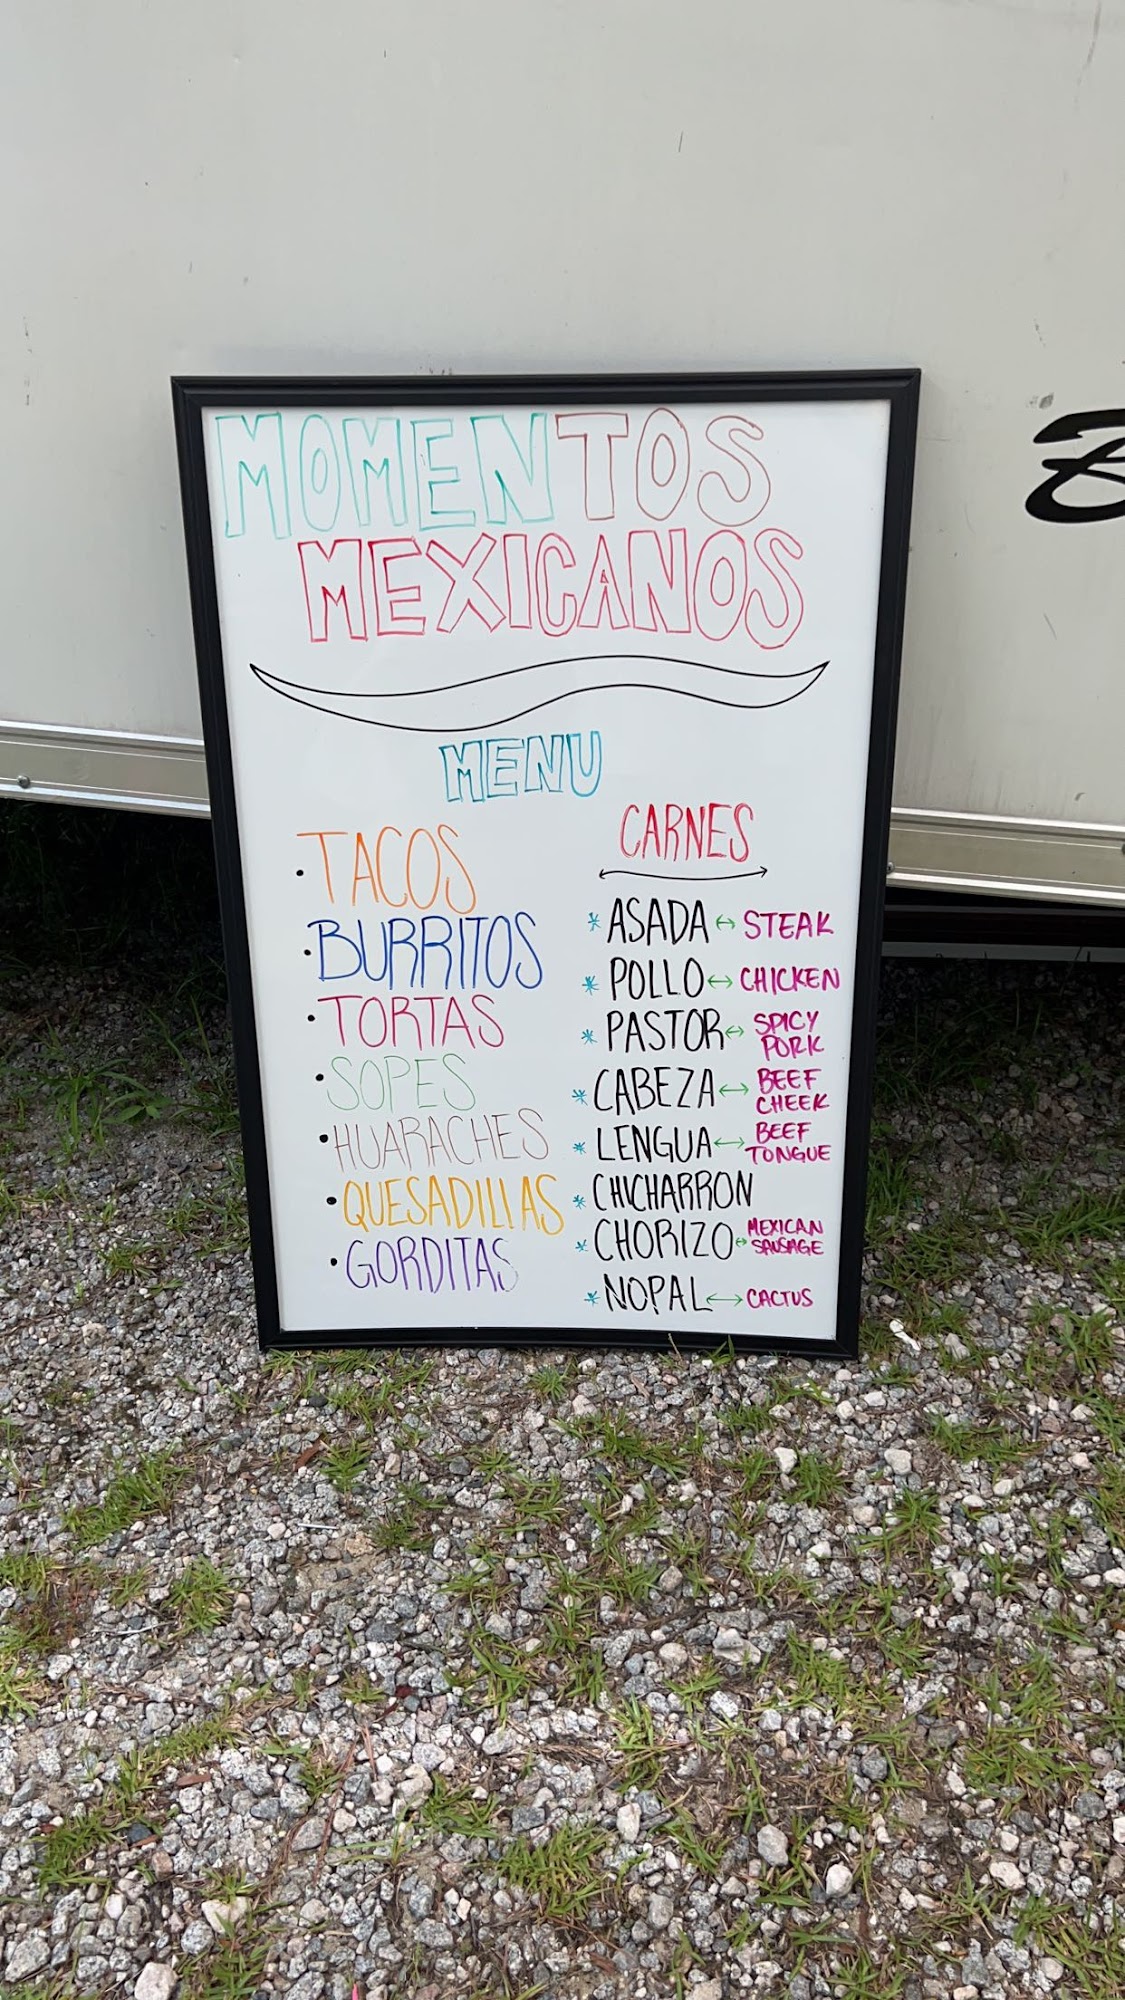 MOMENTOS
MEXICANOS
MENU
• TACOS
• BURRITOS
• TORTAS
• SOPES
• HUARACHES
• QUESADILLAS
• GORDITAS
CARNES
* ASADA ↔ STEAK
* POLLO ↔ CHICKEN
* PASTOR ↔ SPICY
PORK
* CABEZA ↔ BEEF
CHEEK
* LENGUA ↔ BEEF
TONGUE
* CHICHARRON
* CHORIZO ↔ MEXICAN
SAUSAGE
* NOPAL ↔ CACTUS